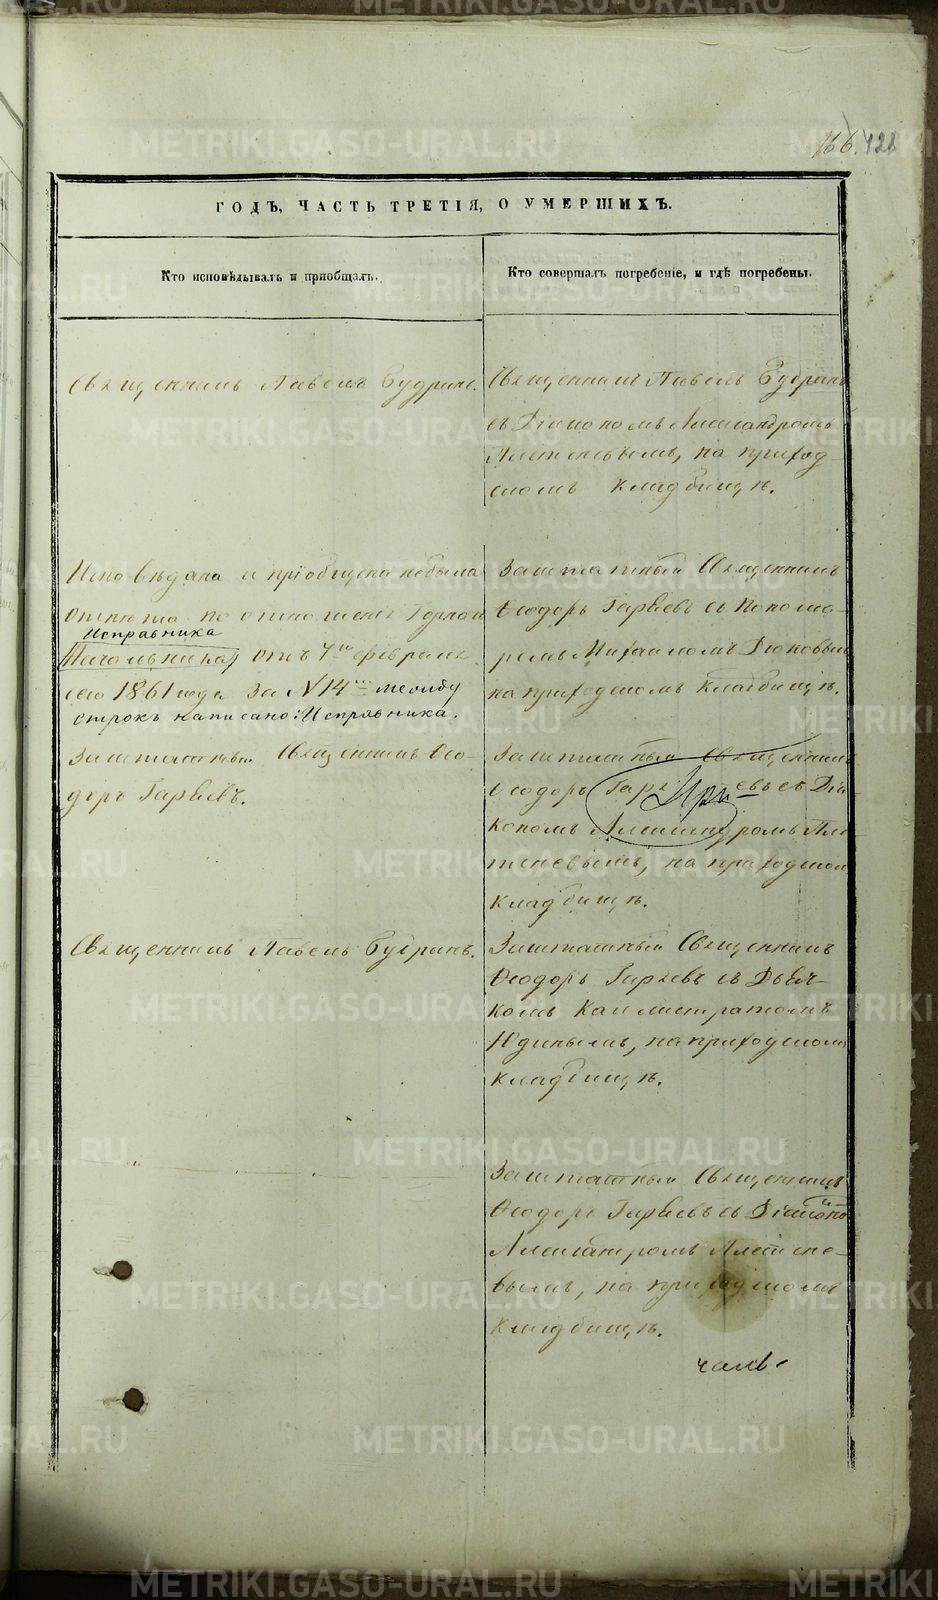 166. 128
ГОДЪ, ЧАСТЬ ТРЕТІЯ, О УМЕРШИХЪ.
Кто исповѣдывалъ и пріобщалъ.
Кто совершалъ погребеніе, и гдѣ погребены.
Священникъ Павелъ Будринъ.
Священникъ Павелъ Будринъ
съ Діакономъ Александромъ
на приход-
скомъ кладбищѣ.
Исповѣдана и пріобщена небыла
отпѣта по отношенію Горнаго
Исправника
Начальника отъ 7го февраля
сего 1861 года за №14 между
строкъ написано: Исправника.
Заштатный Священникъ
Ѳеодоръ Гаряевъ съ Понома-
ремъ Михаиломъ
на приходскомъ кладбищѣ.
Заштатный Священникъ Ѳео-
доръ Гаряевъ.
Заштатный Священникъ
Ѳеодоръ Гаряевъ съ Діа-
кономъ Александромъ
на приходском
кладбищѣ.
При
Священникъ Павелъ Будринъ.
Заштатный Священникъ
Ѳеодоръ Гаряевъ съ Дьяч-
комъ Каллистратомъ
Юдинымъ, на приходскомъ
кладбищѣ.
Заштатный Священникъ
Ѳеодоръ Гаряевъ съ Діакономъ
Александромъ
на приходскомъ
кладбищѣ.
METRIKI.GASO-URAL.RU